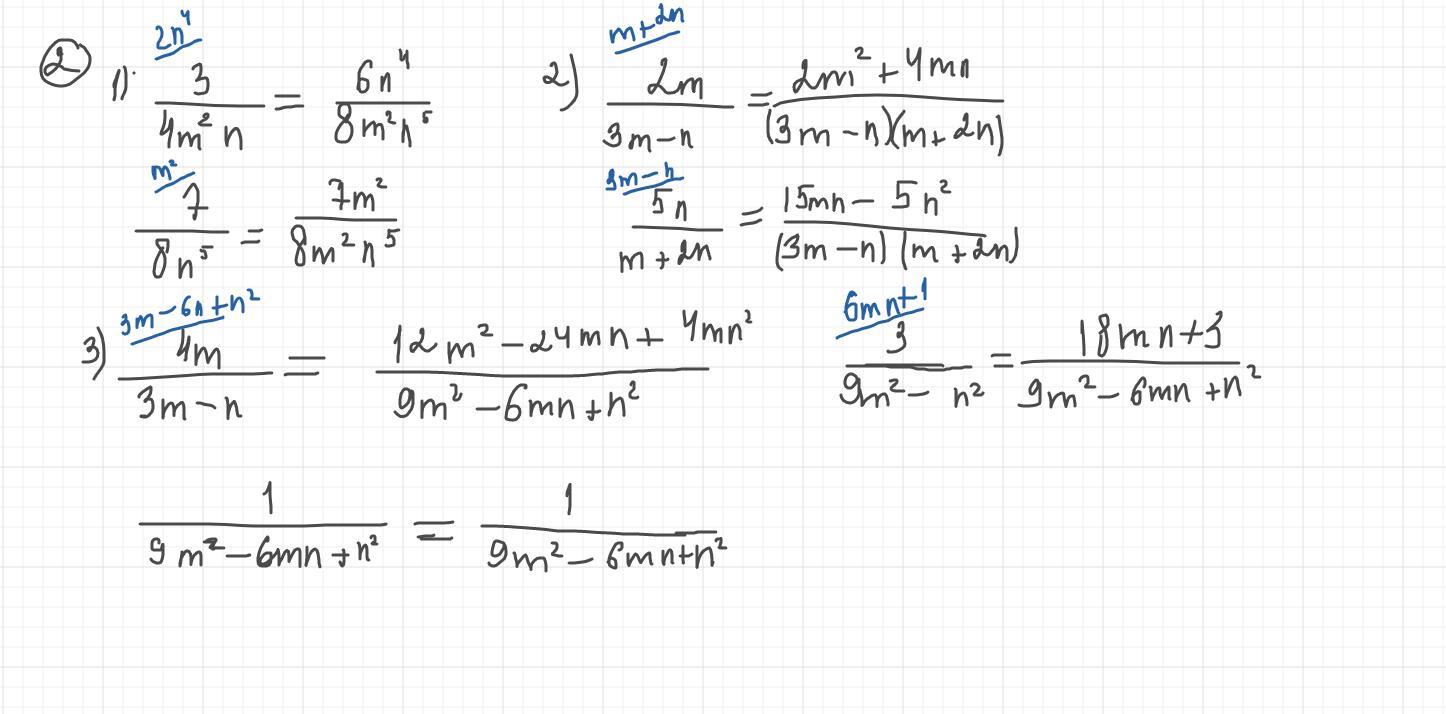 ② 1) 2n⁴ 3/(4m²n) = 6n⁴/(8m²n⁵)
m² 7/(8n⁵) = 7m²/(8m²n⁵)
2) m+2n 2m/(3m-n) = (2m²+4mn)/((3m-n)(m+2n))
3m-n 5n/(m+2n) = (15mn-5n²)/((3m-n)(m+2n))
3) 3m-6n+n² 4m/(3m-n) = (12m²-24mn+4mn²)/(9m²-6mn+n²)
6mn+1 3/(9m²-n²) = (18mn+3)/(9m²-6mn+n²)
1/(9m²-6mn+n²) = 1/(9m²-6mn+n²)